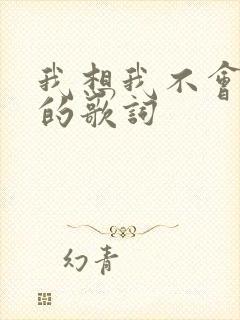 我想我不會
的歌詞
幻青